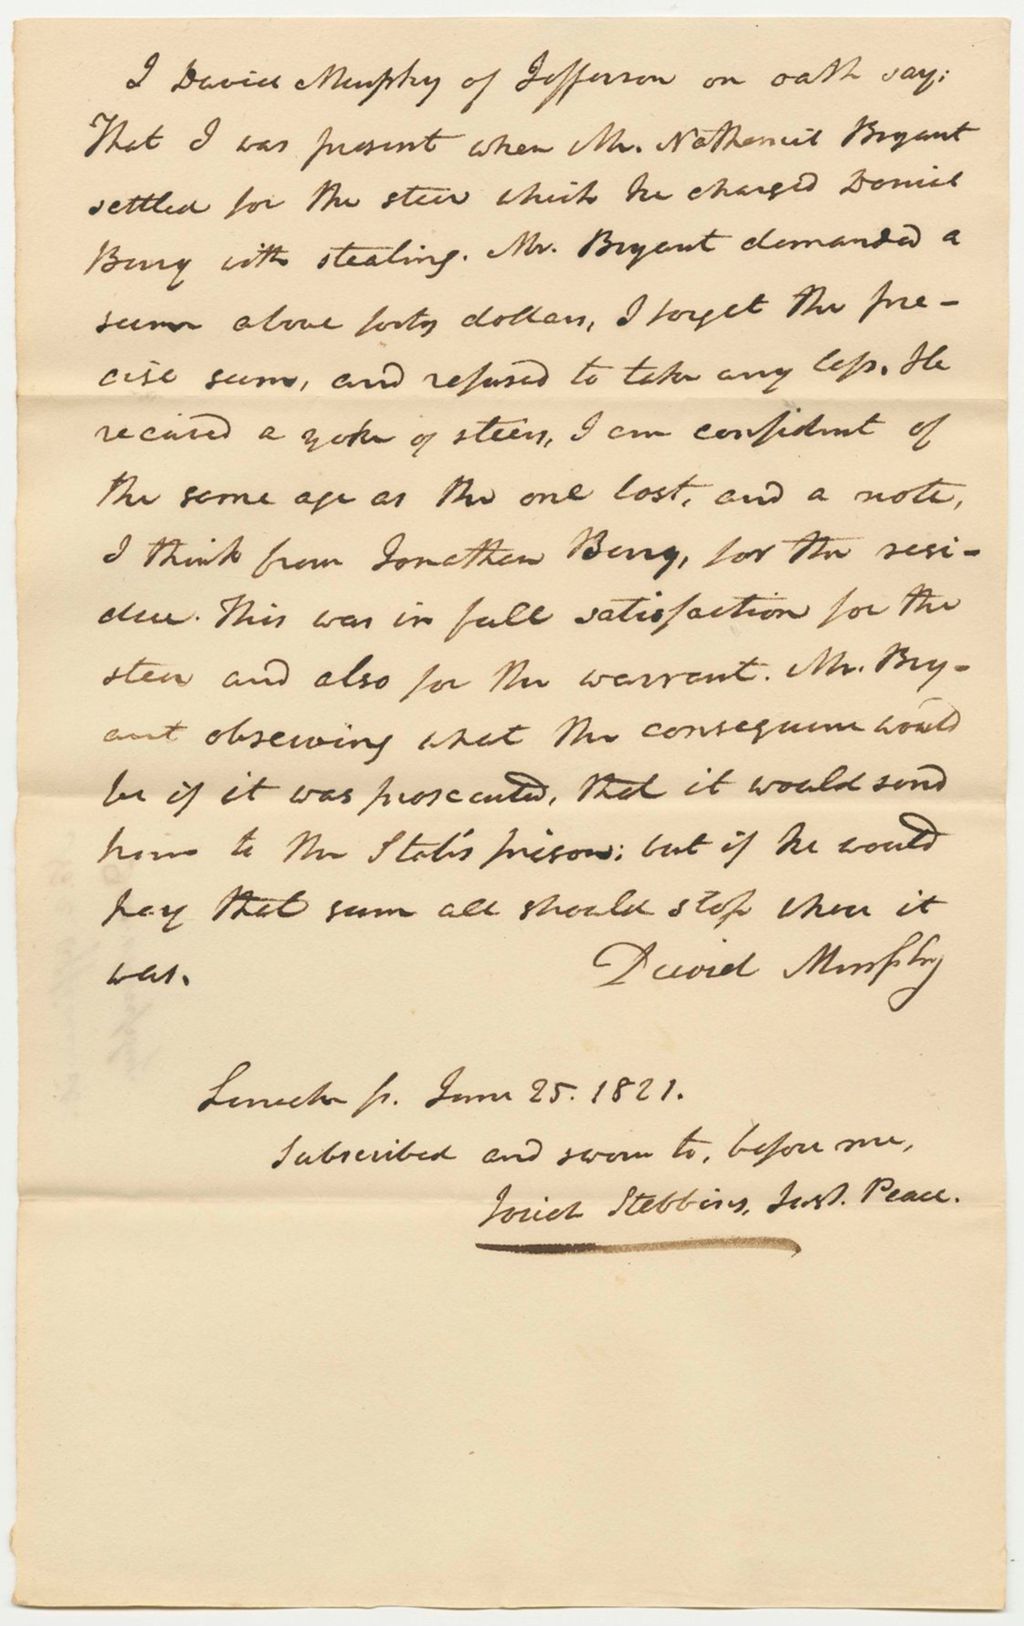 I David Murphy of Jefferson on oath say:
That I was present when Mr. Nathaniel Bryant
settled for the steer which he charged Daniel
Berry with stealing. Mr. Bryant demanded a
sum above forty dollars, I forget the pre-
cise sum, and refused to take any less. He
received a yoke of steers, I am confident of
the same age as the one lost, and a note,
I think from Jonathan Berry, for the resi-
due. This was in full satisfaction for the
steer and also for the warrant. Mr. Bry-
ant observing what the consequence would
be if it was prosecuted, that it would send
him to the State's prison; but if he would
pay that sum all should stop where it
was. David Murphy
Lincoln ss. June 25. 1821.
Subscribed and sworn to, before me,
Josiah Stebbins, Just. Peace.